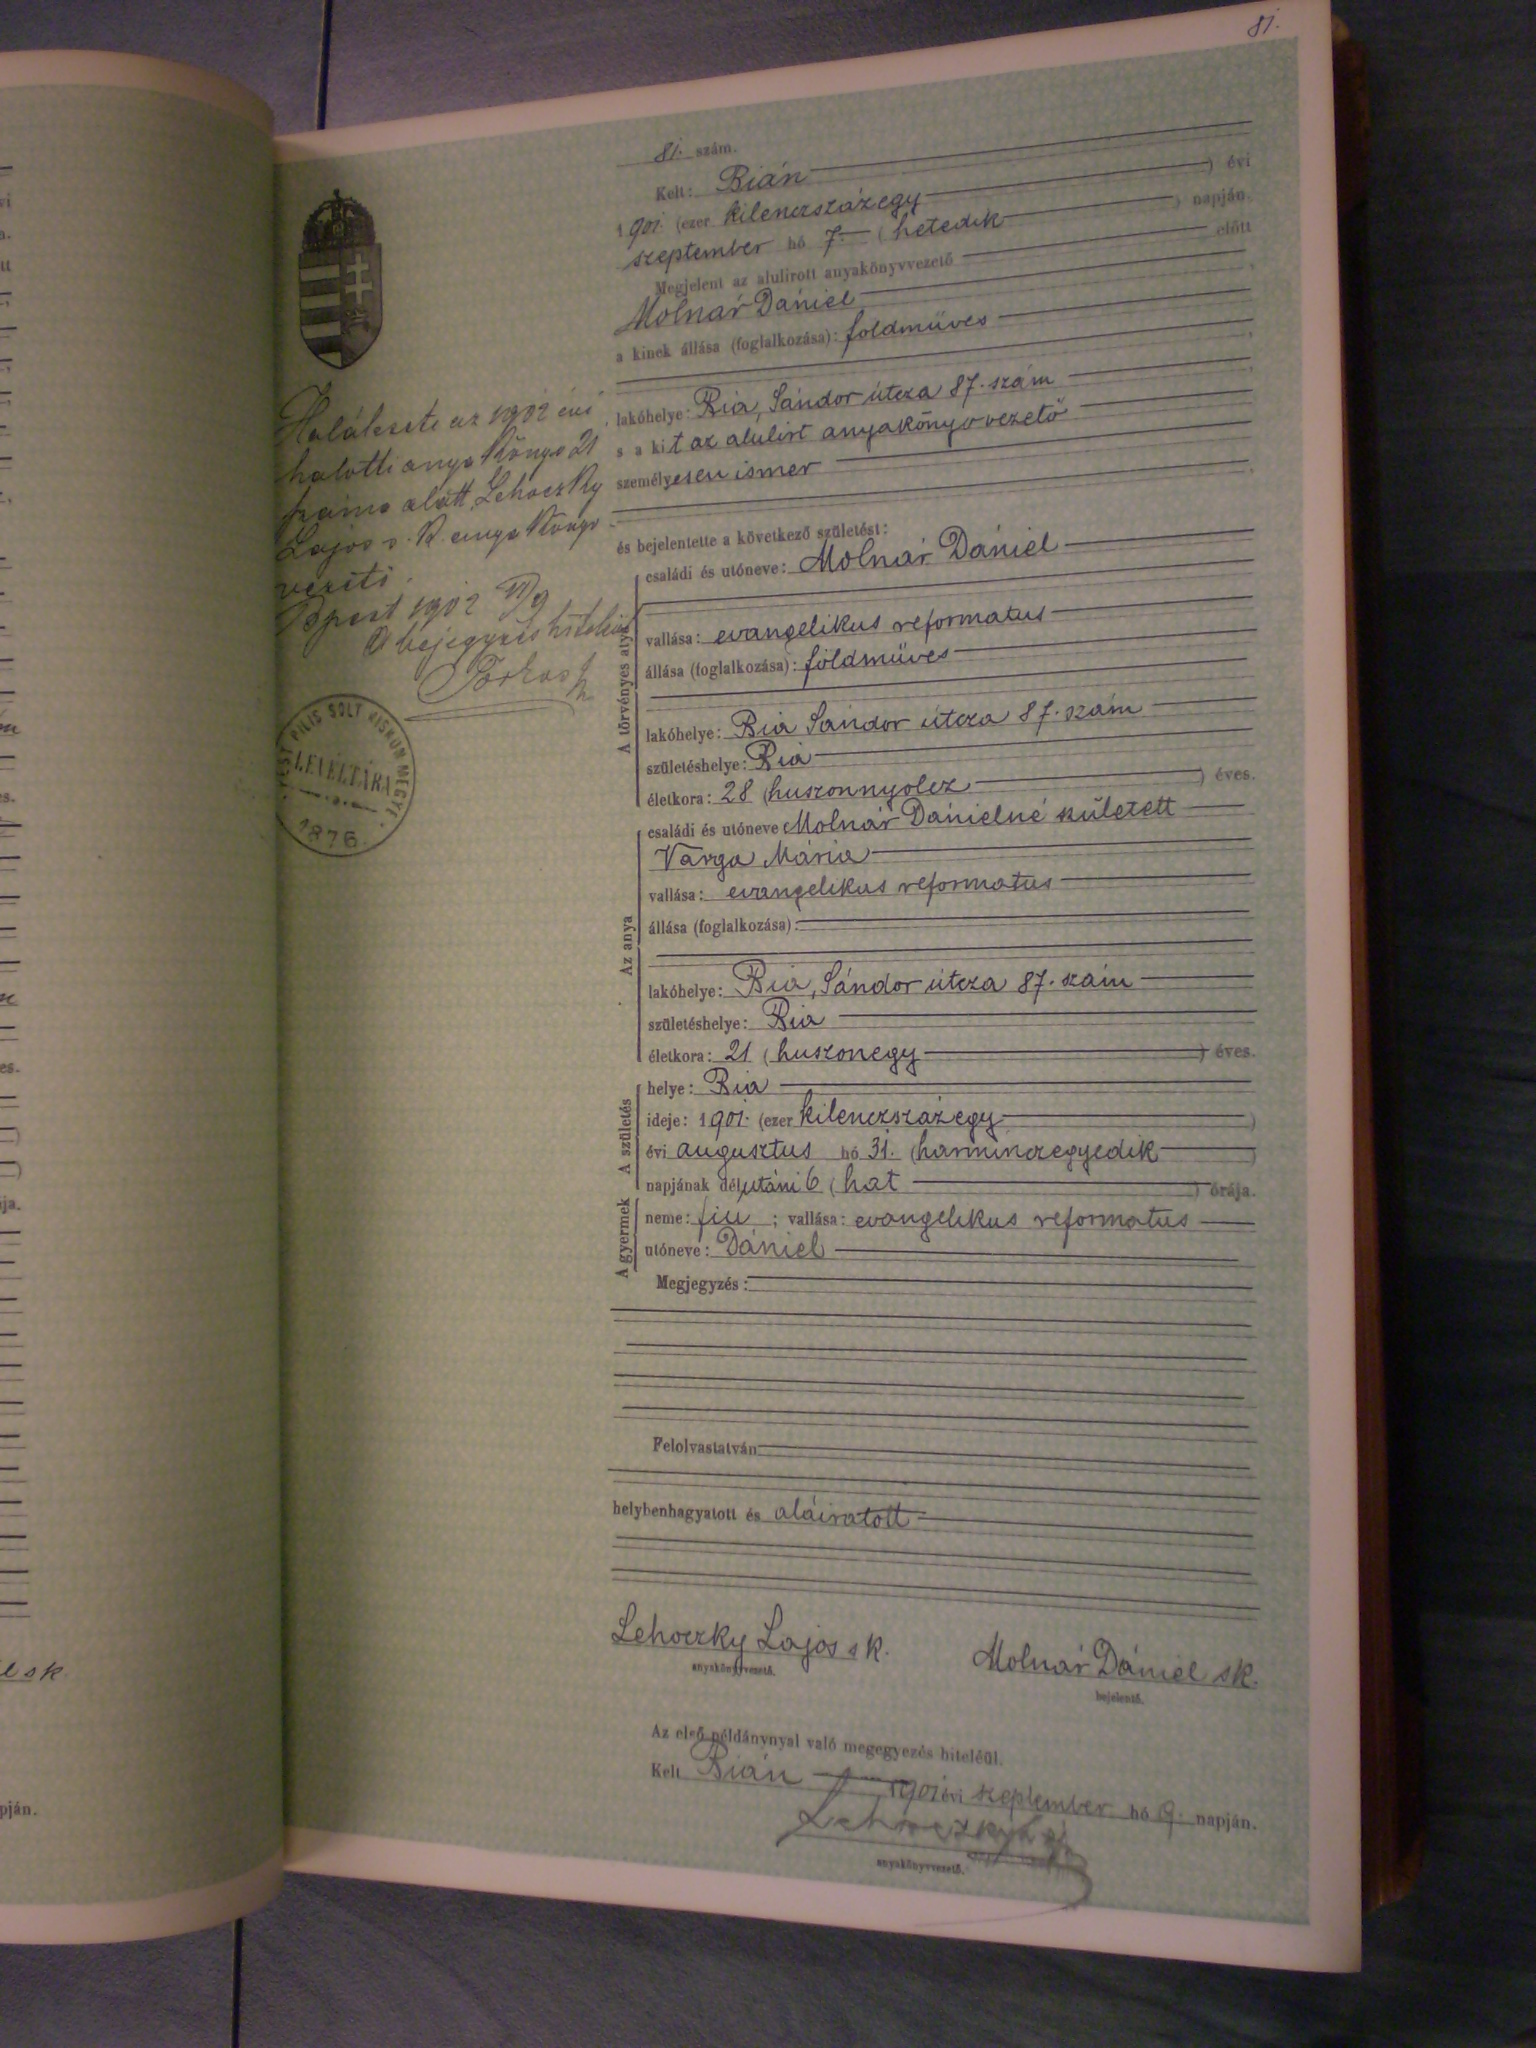 81.
81. szám.
Kelt: Bián
1901. (ezer kilenczszázegy) évi
szeptember hó 7. (hetedik) napján.
Megjelent az alulirott anyakönyvvezető előtt
Molnár Dániel
a kinek állása (foglalkozása): földmüves
lakóhelye: Bia, Sándor utcza 87. szám
s a kit az alulirt anyakönyvvezető
személyesen ismer
és bejelentette a következő születést:
A törvényes atya
családi és utóneve: Molnár Dániel
vallása: evangelikus reformatus
állása (foglalkozása): földmüves
lakóhelye: Bia Sándor utcza 87. szám
születéshelye: Bia
életkora: 28 (huszonnyolcz) éves.
Az anya
családi és utóneve: Molnár Dánielné született
Varga Mária
vallása: evangelikus reformatus
állása (foglalkozása):
lakóhelye: Bia, Sándor utcza 87. szám
születéshelye: Bia
életkora: 21 (huszonegy) éves.
A születés
helye: Bia
ideje: 1901. (ezer kilenczszázegy)
évi augusztus hó 31. (harminczegyedik)
napjának délutáni 6 (hat) órája.
A gyermek
neme: fiú; vallása: evangelikus reformatus
utóneve: Dániel
Megjegyzés:
Felolvastatván
helybenhagyatott és aláiratott
Lehoczky Lajos sk.
anyakönyvvezető.
Molnár Dániel sk.
bejelentő.
Az első példánynyal való megegyezés hiteléül.
Kelt Bián 1901 évi szeptember hó 9. napján.
Lehoczky
anyakönyvvezető.
Halálesete az 1902 évi
halotti anyakönyv 21
száma alatt, Lehoczky
Lajos s. k. anyakönyv-
vezető.
Bpest 1902 VI/9
A bejegyzés hiteléül
PEST PILIS SOLT KISKUN MEGYE
LEVÉLTÁRA
1876.
sk
pján.